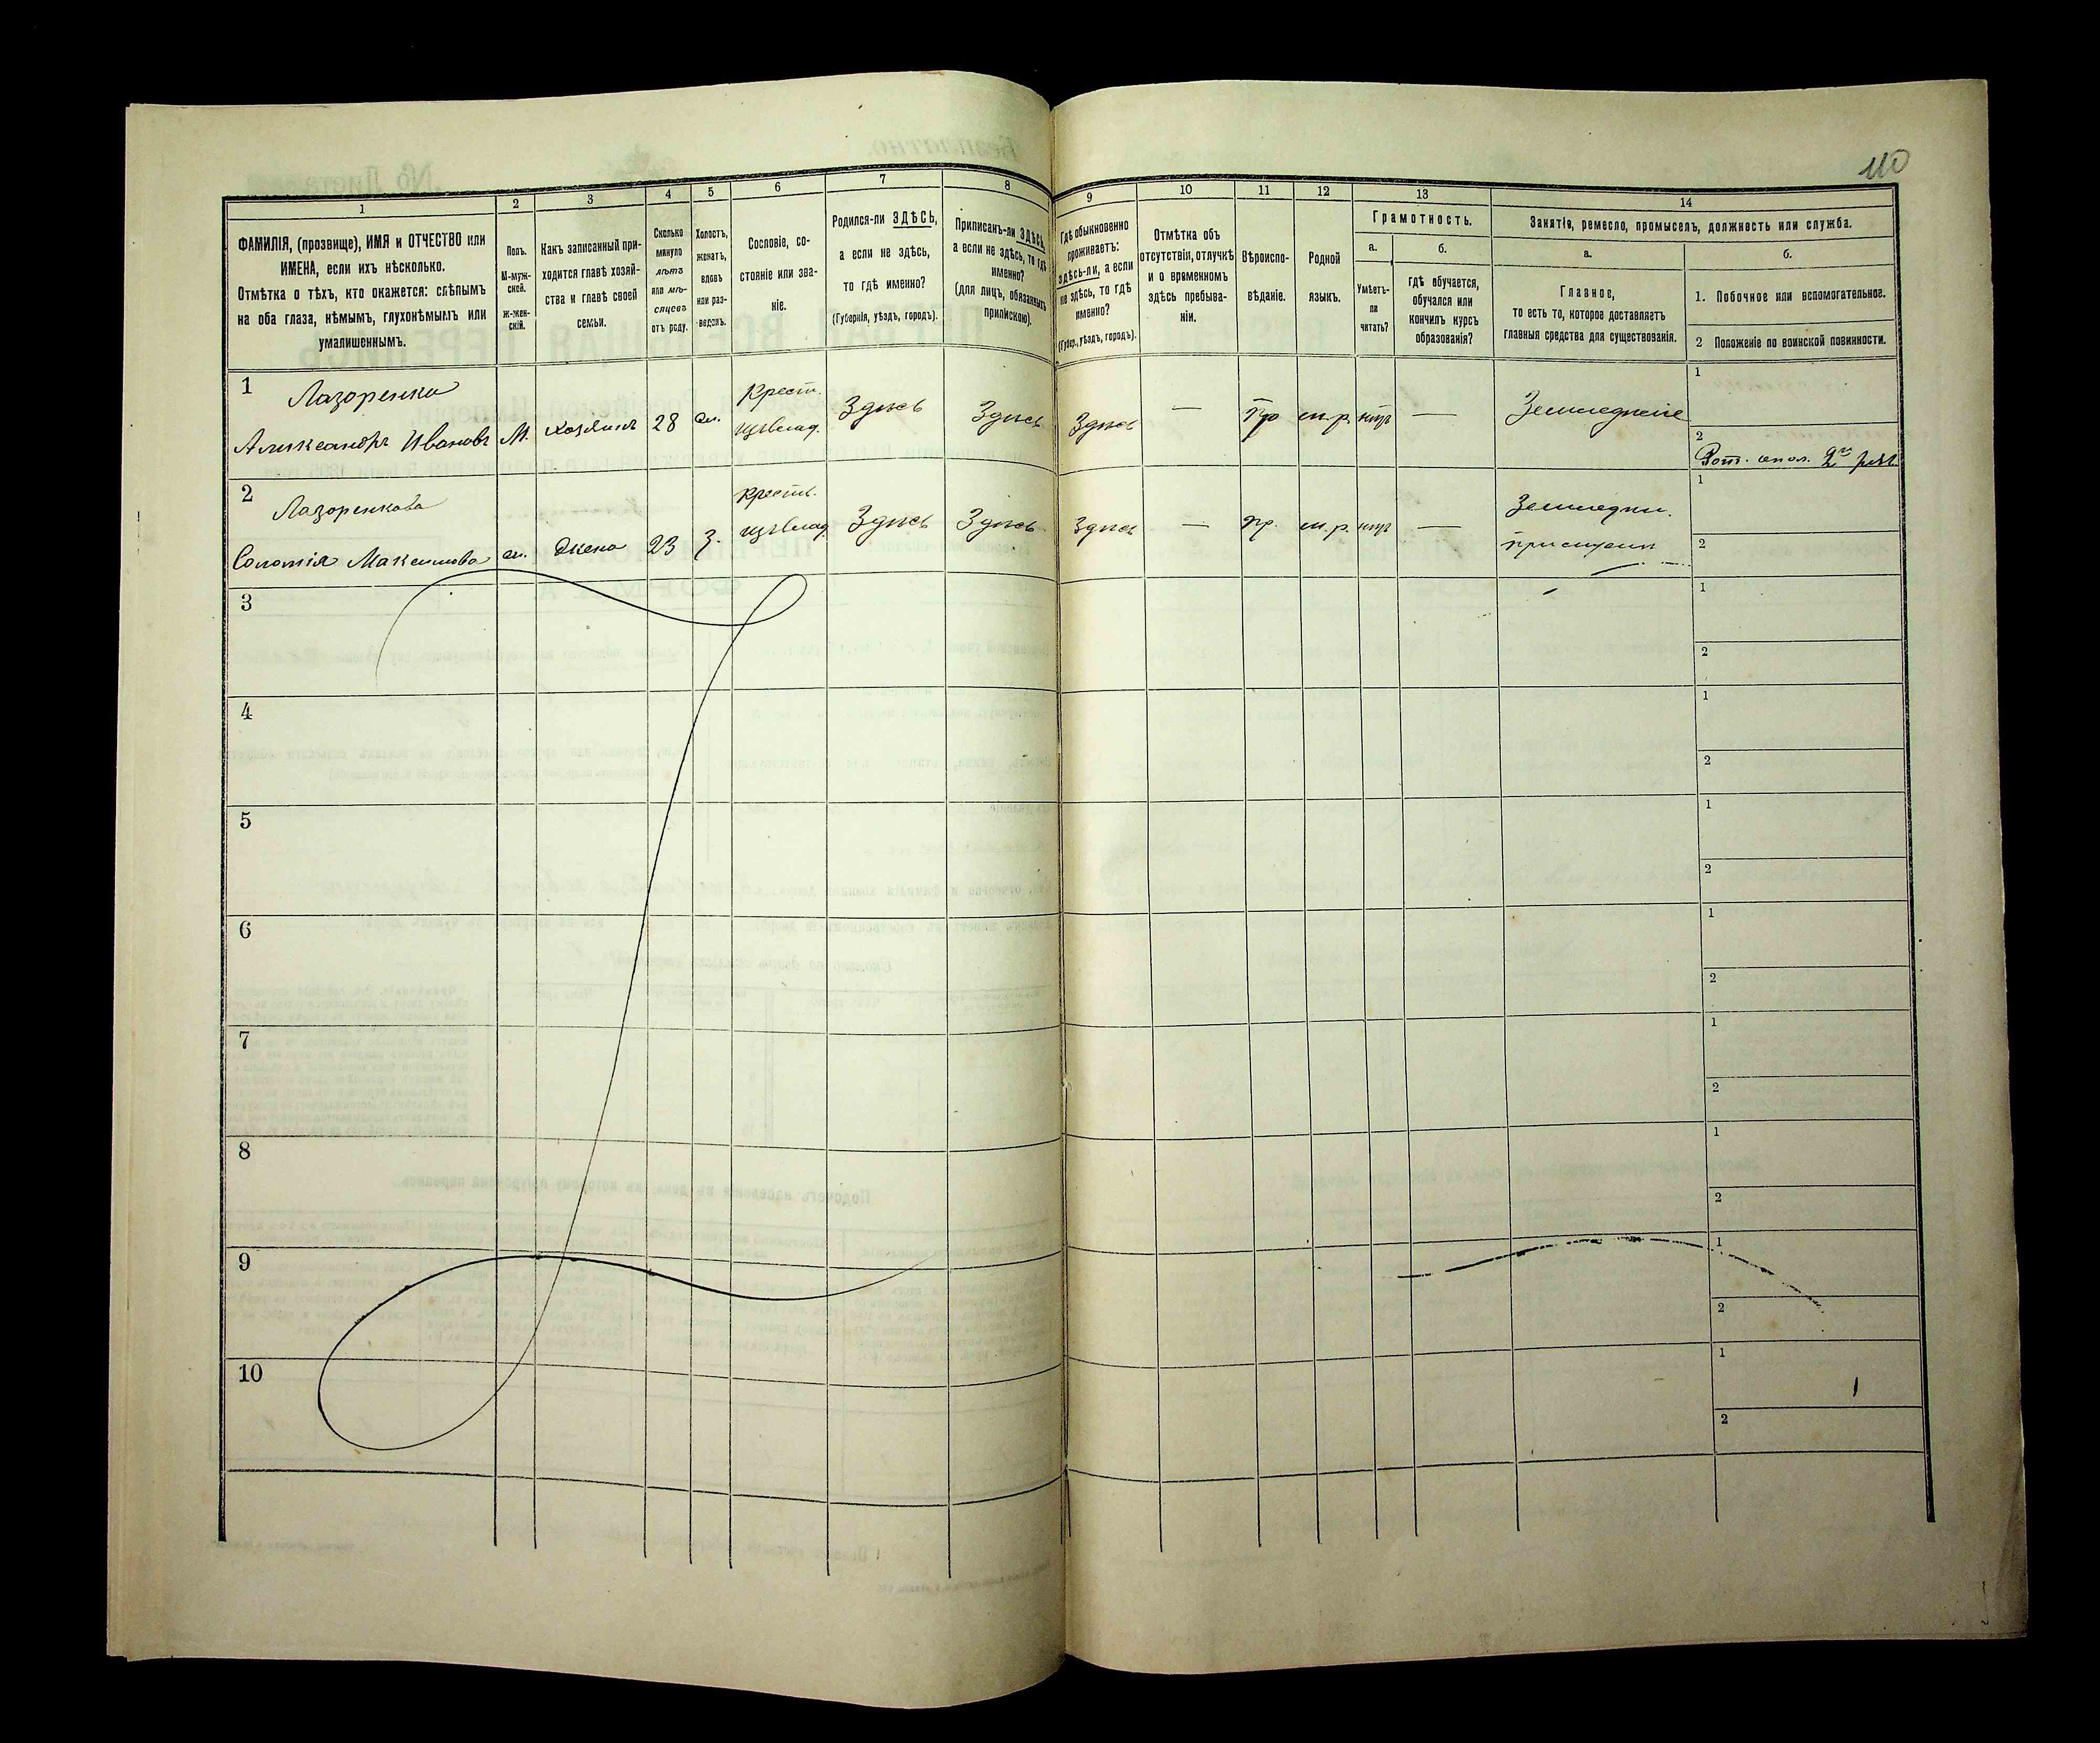 110
1
2
3
4
5
6
7
8
9
10
11
12
13
14
ФАМИЛІЯ, (прозвище), ИМЯ и ОТЧЕСТВО или
ИМЕНА, если ихъ нѣсколько.
Отмѣтка о тѣхъ, кто окажется: слѣпымъ
на оба глаза, нѣмымъ, глухонѣмымъ или
умалишеннымъ.
Полъ.
М-муж-
ской.
ж-жен-
скій.
Какъ записанный при-
ходится главѣ хозяй-
ства и главѣ своей
семьи.
Сколько
минуло
лѣтъ
или мѣ-
сяцевъ
отъ роду.
Холостъ,
женатъ,
вдовъ
или раз-
веденъ.
Сословіе, со-
стояніе или зва-
ніе.
Родился-ли ЗДѢСЬ,
а если не здѣсь,
то гдѣ именно?
(Губернія, уѣздъ, городъ).
Приписанъ-ли ЗДѢСЬ,
а если не здѣсь, то гдѣ
именно?
(для лицъ, обязанныхъ
припискою).
Гдѣ обыкновенно
проживаетъ:
здѣсь-ли, а если
не здѣсь, то гдѣ
именно?
(Губер., уѣздъ, городъ).
Отмѣтка объ
отсутствіи, отлучкѣ
и о временномъ
здѣсь пребыва-
ніи.
Вѣроиспо-
вѣданіе.
Родной
языкъ.
Грамотность.
а.
Умѣетъ-
ли
читать?
б.
гдѣ обучается,
обучался или
кончилъ курсъ
образованія?
Занятія, ремесло, промыселъ, должность или служба.
а.
Главное,
то есть то, которое доставляетъ
главныя средства для существованія.
б.
1. Побочное или вспомогательное.
2 Положеніе по воинской повинности.
1
Лазоренко
Крест.
Александръ Ивановъ М. хозяинъ 28 ж. Здѣсь Здѣсь Здѣсь — Пр м.р. нѣтъ — Земледѣліе
1
2
2
Лазоренкова
крест.
Соломія Максимова ж. жена 23 З. Здѣсь Здѣсь Здѣсь — пр. м.р. нѣтъ — Земледѣл.
1
2
3
1
2
4
1
2
5
1
2
6
1
2
7
1
2
8
1
2
9
1
2
10
1
2